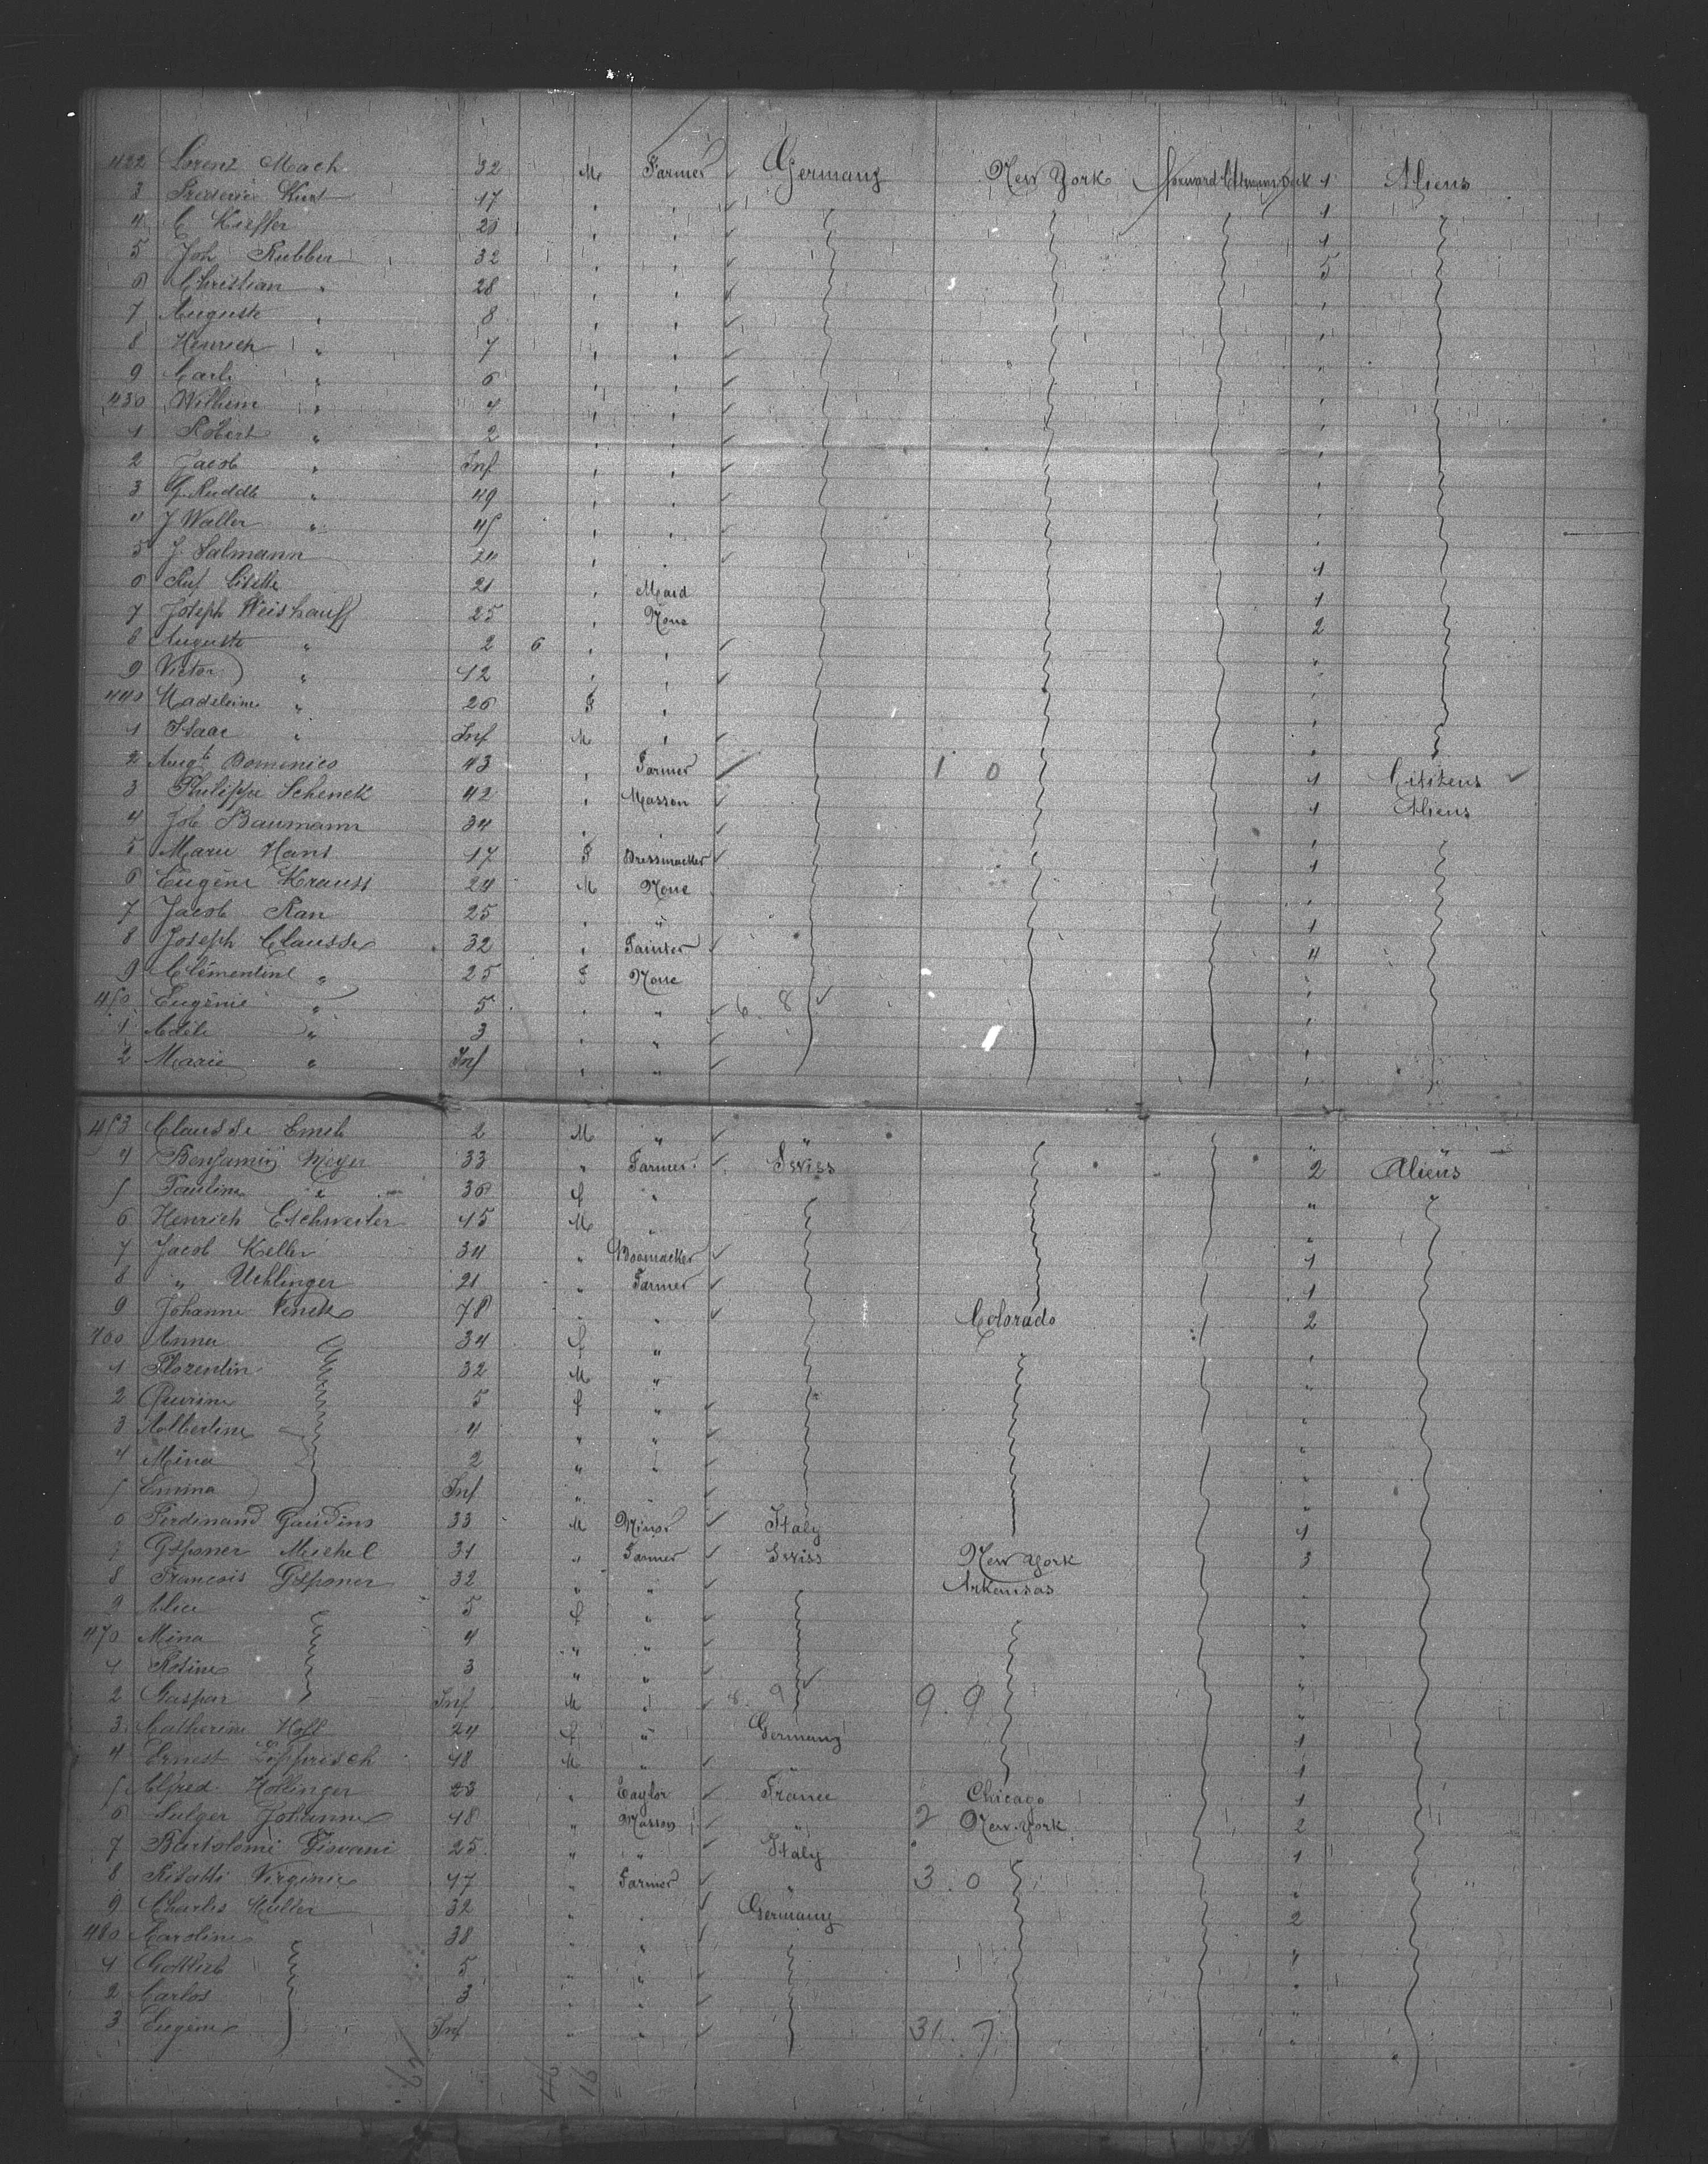 422 Lorenz Mach 32 M Farmer Germany New York forward Steerage Deck 1 Aliens
3 Frederic Kurt 17 " " 1
4 C Kieffer 20 " " 1
5 Joh Rubber 32 " " 5
6 Christian " 28 " "
7 Auguste " 8 " "
8 Heinrich " 7 " "
9 Carl " 6 " "
430 Wilhem " 4 " "
1 Robert " 2 " "
2 Jacob " Inf " "
3 G. Ruddle " 49 " "
4 J Waller " 45 " "
5 J. Salmann 24 " " 1
6 Ruf Lisette 21 " Maid 1
7 Joseph Weishauff 25 " None 2
8 Auguste " 2 6 " " "
9 Victor " 12 " "
440 Madeleine " 26 F "
1 Isaac " Inf M "
2 Augte Dominico 43 " Farmer 1 0 1 Citizens
3 Philippe Schenck 42 " Masson 1 Aliens
4 Joh Baumann 34 " "
5 Marie Hans 17 F Dressmacker 1
6 Eugène Krauss 24 M None
7 Jacob Ran 25 " " 1
8 Joseph Clausse 32 " Painter 4
9 Clémentine " 25 F None
450 Eugénie " 5 " " 6 . 8
1 Adèle " 3 " "
2 Marie " Inf " "
453 Clausse Emil 2 M " " "
4 Benjamin Meyer 33 " Farmer Swiss 2 Aliens
5 Pauline " 36 f " "
6 Henrich Eschweiler 45 M " "
7 Jacob Keller 34 " Shoomacker 1
8 " Uehlinger 21 " Farmer 1
9 Johann 78 " " Colorado 2
460 Anna 34 f "
1 Florentin 32 M " "
2 5 f " "
3 Albertine 4 " " "
4 Mina 2 " " "
5 Emma Inf " " "
6 Ferdinand Gaudins 33 M Miner Italy 1
7 Gsponer Michel 31 " Farmer Swiss New York 3
8 Francois Gsponer 32 " " Arkansas "
9 Alice 5 f " "
470 Mina 4 " "
1 Rosine 3 " " "
2 Gaspar Inf M " 8 . 9 9 . 9 "
3 Catherine Hoff 24 f " Germany 1
4 Ernest 18 M " " 1
5 Alfred Hollinger 23 " Taylor France Chicago 1
6 Sulger Johanne 48 " Masson " 2 New-York 2
7 Bartolomi Giovani 25 " " Italy 1
8 Virginie 47 " Farmer " 3 . 0 "
9 Charles Muller 32 " " Germany 2
480 Caroline 38 " " "
1 Gottlieb 5 " " "
2 Carlos 3 " " "
3 Eugène Inf " " 31 . 7 "
46 16